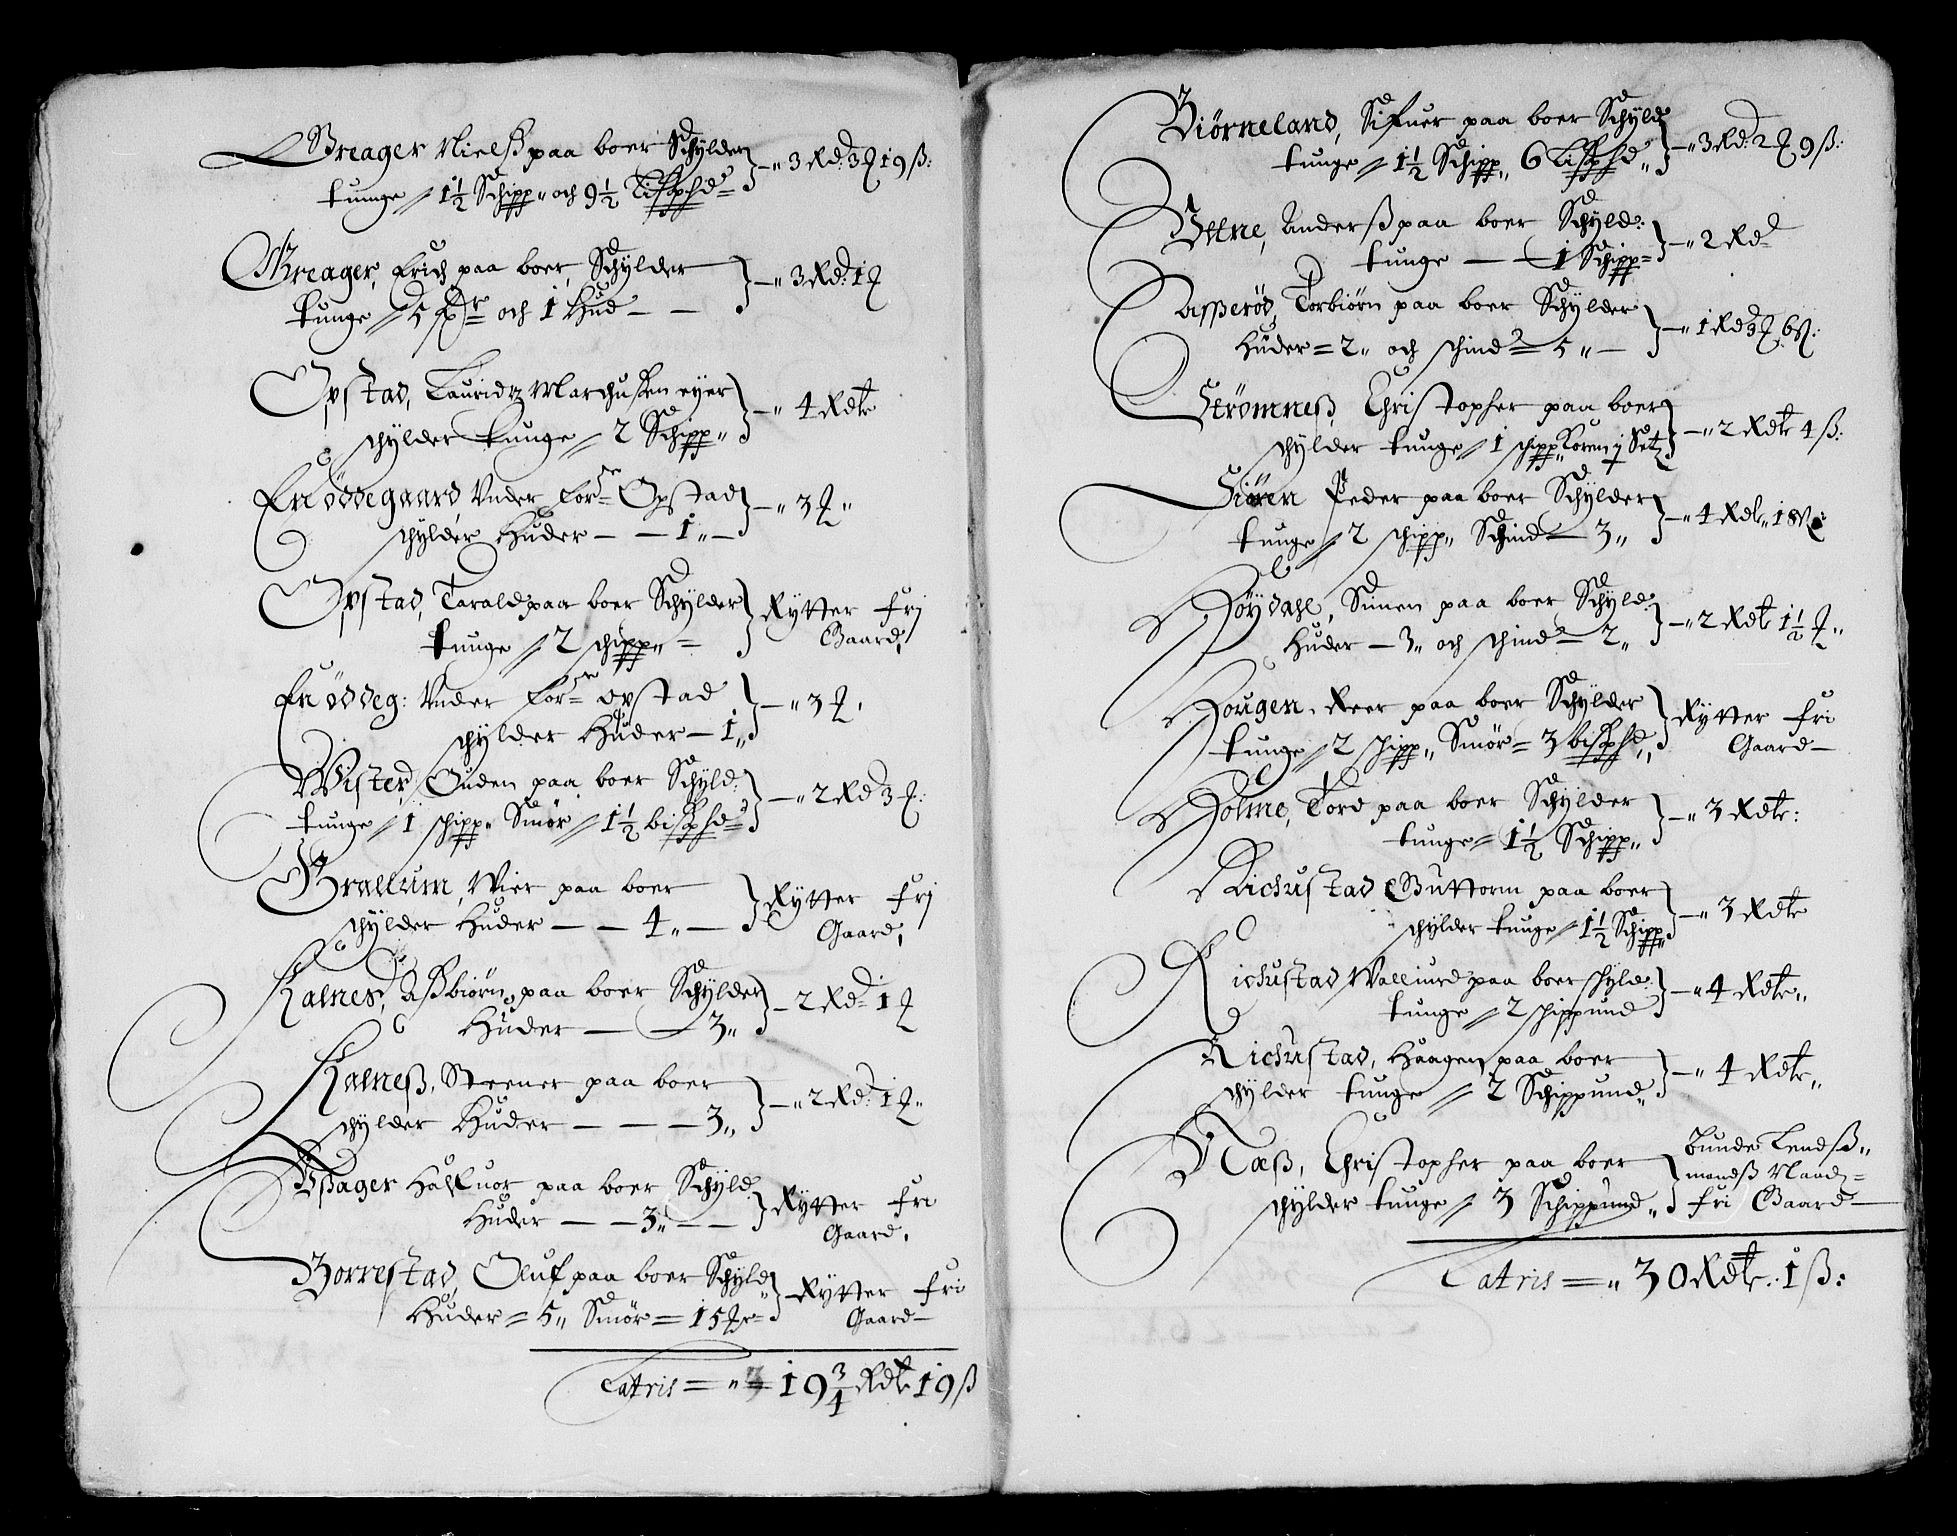 Greager Nielß paa boer Schylder
tunge // 1½ Schipp„ och 9½ Lißphd= } – „ 3 Rd: 3 ₰ 19 ß:
Greager, Erich paa boer, Schylder
tunge // 5 och 1 Hud – – } – „ 3 Rd: 1 ₰
Opstad, Lauridtz Marchußen eyer
schylder tunge // 2 Schipp„ } – „ 4 Rdtr
En Øddegaard Vnder for: Opstad
schylder Huder – – 1 „ – } – „ 3 ₰ „
Opstad, Tarald paa boer Schylder
tunge // 2 schipp„ = } Rytter frj
Gaard,
En Øddeg: Vnder for: opstad
schylder Huder – 1 „ } – „ 3 ₰ ,
Wister, Ouden paa boer Schyld:
tunge // 1 schipp„ Smør // 1½ bißphd= } – „ 2 Rd 3 ₰:
Grallum, Wier paa boer
schylder Huder – – 4 „ – } Rytter frj
Gaard,
Kalnes, Aßbiørn paa boer Schylder
Huder – – 3 „ } – 2 Rd= 1 ₰
Kalneß, Steener paa boer
schylder Huder – – – 3 „ } – „ 2 Rd: 1 ₰ „
Vßager Halfuor paa boer Schyld
Huder – – 3 „ – – } Rytter fri
Gaard,
Borrestad, Oluf paa boer Schyld
Huder = 5 „ Smør = 15 } – Rytter fri
Gaard –
Latris = „ 19¾ Rdtr 19 ß
Biørneland, Sifuer paa boer Schyld
tunge // 1½ Schipp„ 6 Lißphd„ } – „ 3 Rd: 2 ₰ 9 ß:
Vttne, Anderß paa boer Schyld:
tunge – – 1 Schipp= } – „ 2 Rd=
Aßerød, Torbiørn paa boer Schylder
Huder = 2 „ och schind = 5 „ – } – „ 1 Rd 3 ₰ 6 ß:
Strømneß, Christopher paa boer
schylder tunge // 1 schipp„ Koren 1 Set } – „ 2 Rdtr 4 ß:
Siøren Peder paa boer Schylder
tunge // 2 schipp„ Schind – 3 „ } – „ 4 Rdtr 18 ß:
Høydahl, Simen paa boer Schyld:
Huder – 3 „ och schind – 2 „ } – „ 2 Rdtr 1½ ₰ „
Hougen, Reer paa boer Schylder
tunge // 2 schipp„ Smør = 3 bißphd„ } Rytter fri
Gaard –
Holme, Tord paa boer Schylder
tunge = 1½ Schipp„ } – „ 3 Rdtr:
Richustad Guttorm paa boer
schylder tunge // 1½ Schipp„ } – „ 3 Rdtr
Richustad Walliurd paa boer schyld:
tunge // 2 schippund } – „ 4 Rdtr „
Richustad, Haagen paa boer
schylder tunge // 2 Schippund „ } – „ 4 Rdtr „
Næß, Christopher paa boer
schylder tunge // 3 Schippund „ } bunde Lendß„
mandß Naadz=
fri Gaard –
Latris = „ 30 Rdtr. 1 ß: